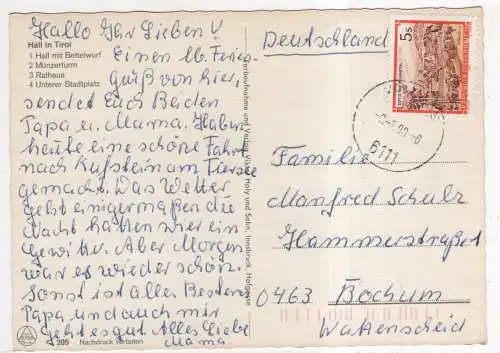 Hallo Ihr Lieben!
Hall in Tirol
1 Hall mit Bettelwurf
2 Münzerturm
3 Rathaus
4 Unterer Stadtplatz
Einen lb. Ferien-
gruß von hier,
sendet Euch Beiden
Papa u. Mama. Haben
heute eine schöne Fahrt
nach Kufstein am Tiersee
gemacht. Das Wetter
geht einigermaßen die
Nacht hatten wier ein
Gewitter. Aber Morgen
war es wieder schön.
Sonst ist alles Besten
Papa und auch mir
geht es gut Alles Liebe
Mama
205 Nachdruck verboten
Deutschland
5s
6111
Familie
Manfred Schulz
Hammerstraße
0463 Bochum
Wattenscheid